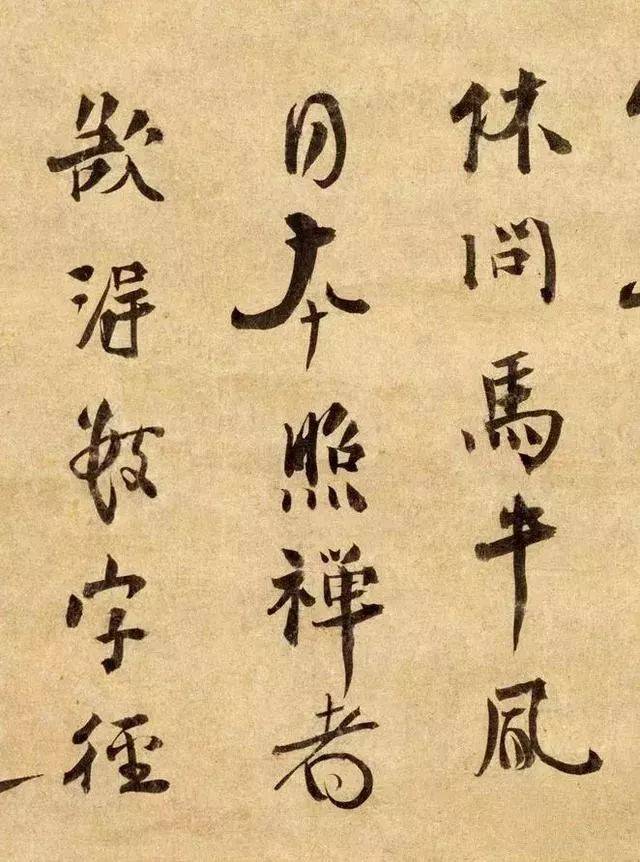 休問馬牛風
日本照禅者
欲得數字徑